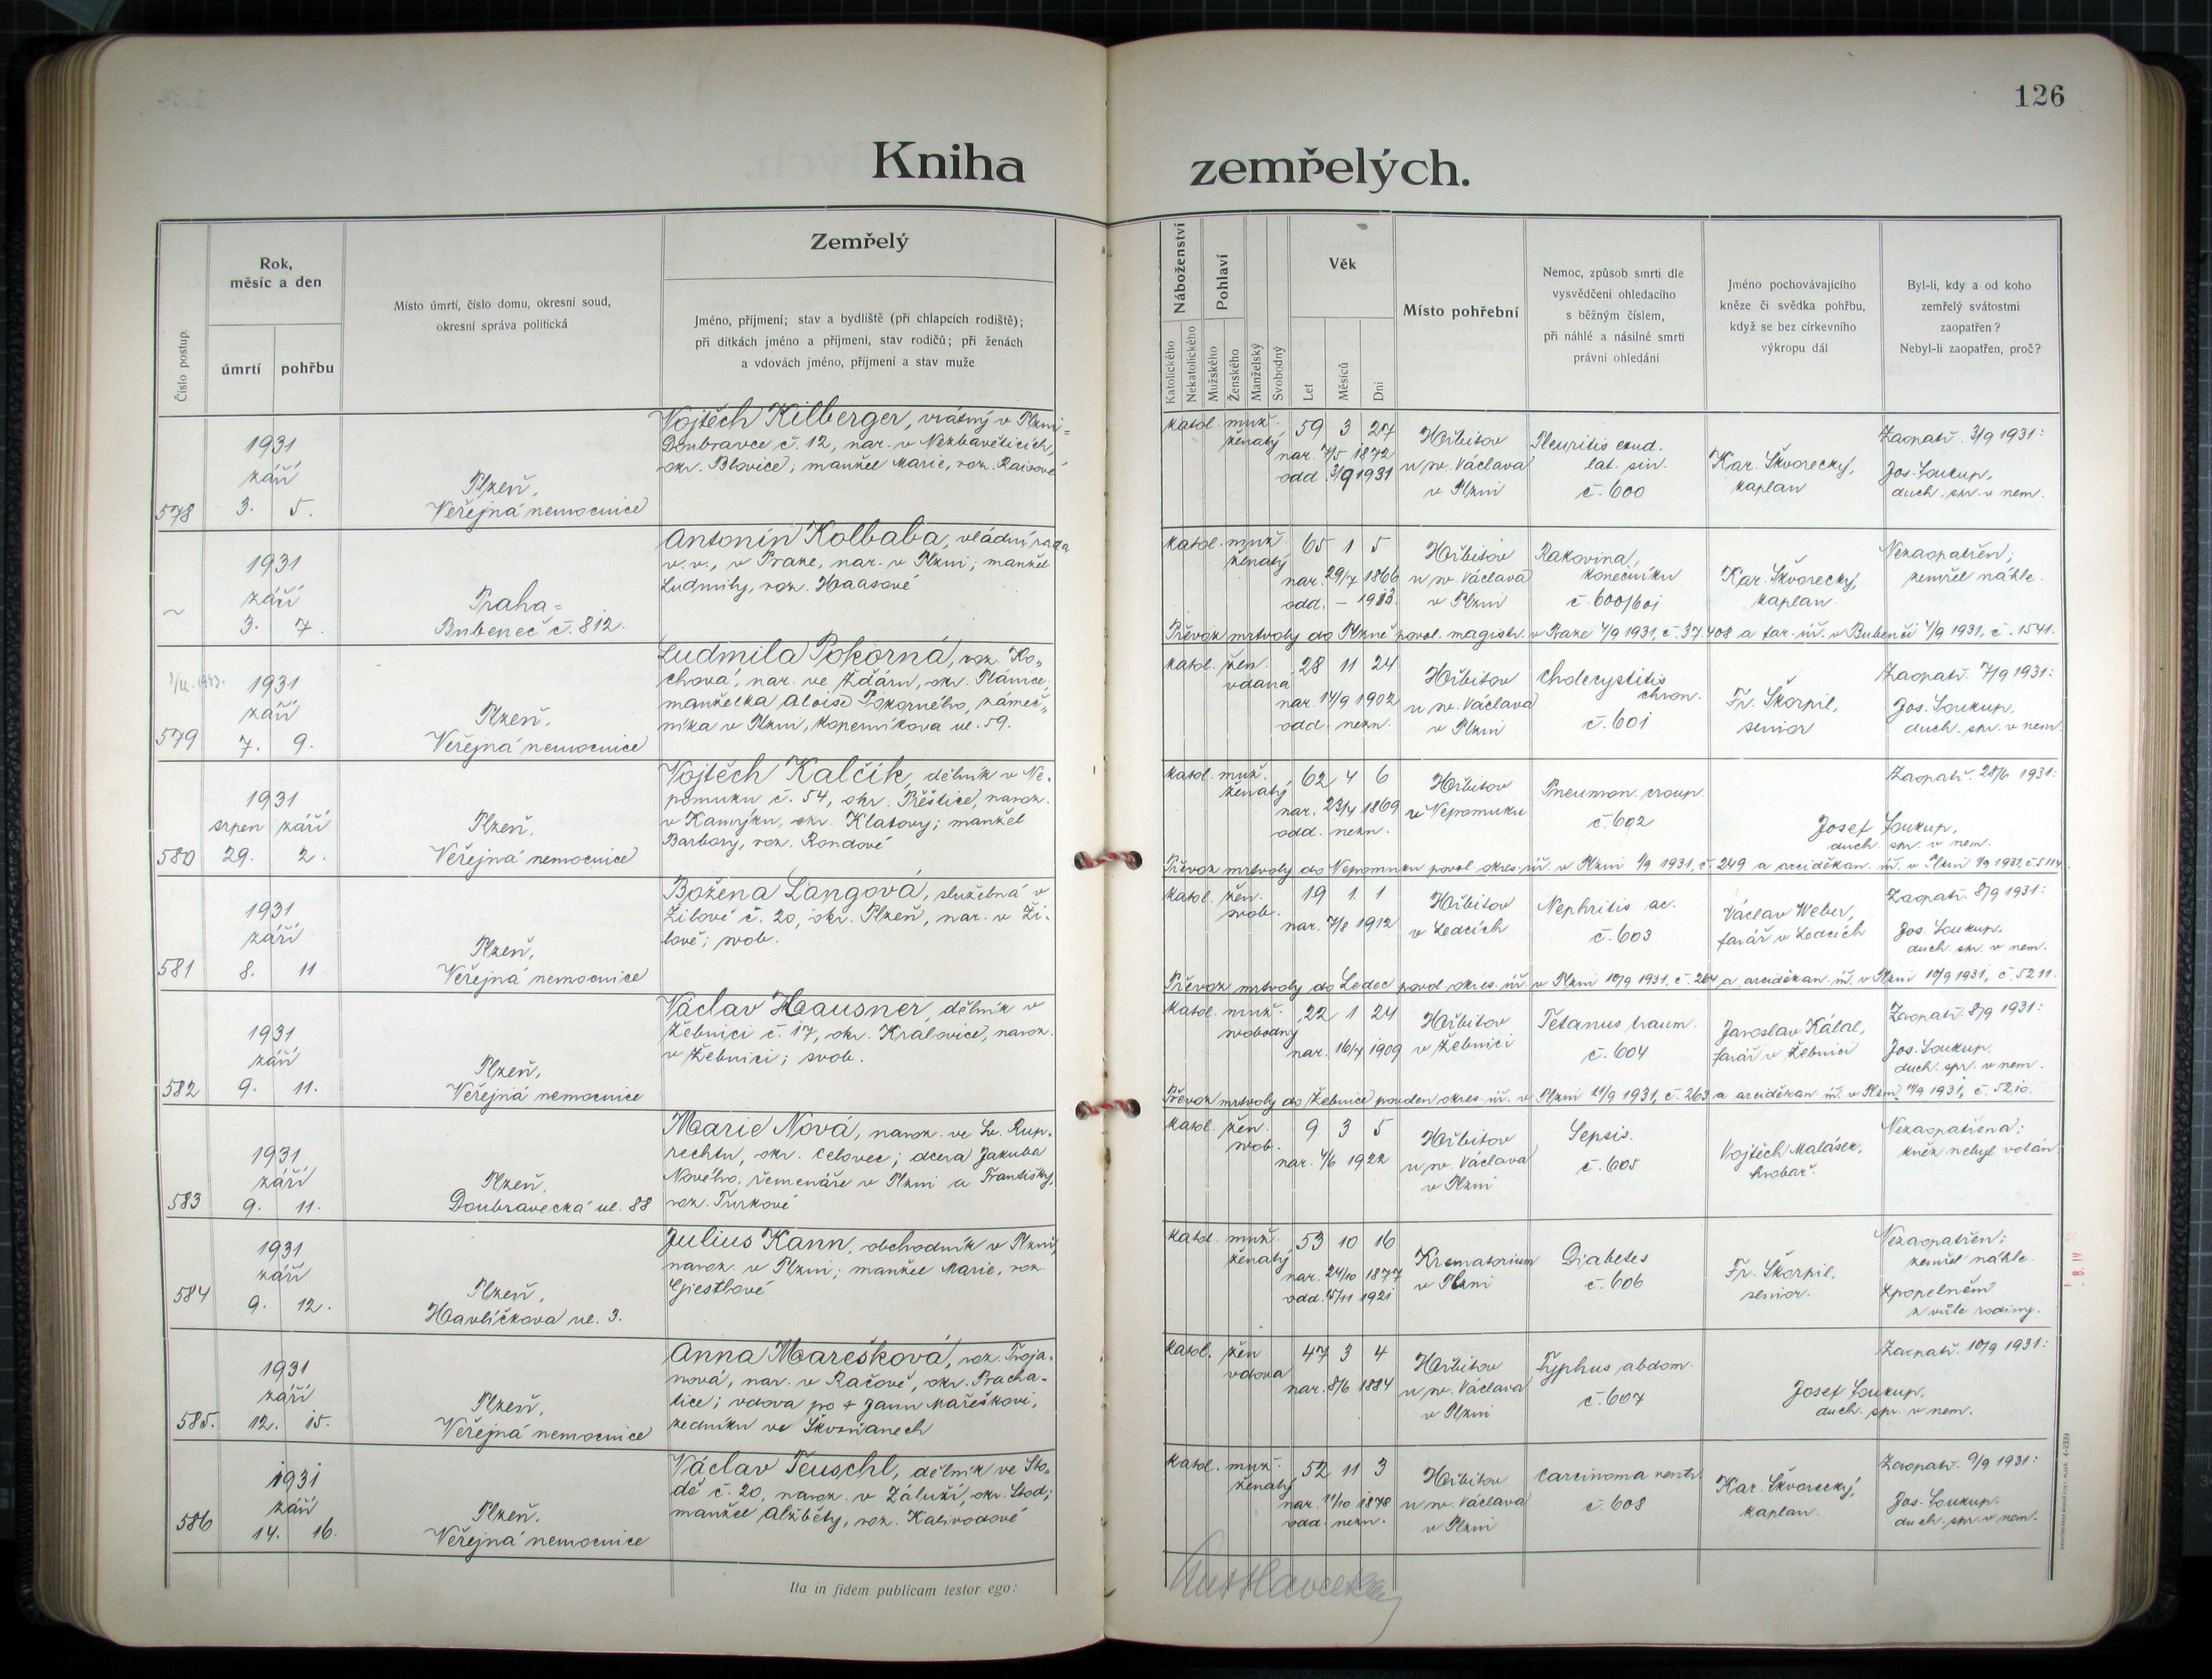 126
Kniha zemřelých.
Číslo postup.
Rok, měsíc a den
úmrtí
pohřbu
Místo úmrtí, číslo domu, okresní soud,
okresní správa politická
Zemřelý
Jméno, příjmení; stav a bydliště (při chlapcích rodiště);
při dítkách jméno a příjmení, stav rodičů; při ženách
a vdovách jméno, příjmení a stav muže
Náboženství
Katolického
Nekatolického
Pohlaví
Mužského
Ženského
Manželský
Svobodný
Věk
Let
Měsíců
Dní
Místo pohřební
Nemoc, způsob smrti dle
vysvědčení ohledacího
s běžným číslem,
při náhlé a násilné smrti
právní ohledání
Jméno pochovávajícího
kněze či svědka pohřbu,
když se bez církevního
výkropu dál
Byl-li, kdy a od koho
zemřelý svátostmi
zaopatřen?
Nebyl-li zaopatřen, proč?
578
1931
září
3. 5.
Plzeň,
Veřejná nemocnice
Vojtěch Kilberger, vrátný v Plzni-
Doubravce č. 12, nar. v Nezbavěticích,
okr. Blovice; manžel Marie, roz. Raisové
katol. muž. 59 3 27
ženatý
nar. 7/5 1872
odd. 3/9 1931
Hřbitov
u sv. Václava
v Plzni
Pleuritis exud.
lat. sin.
č. 600
Kar. Škvorecký,
kaplan
Zaopatř. 3/9 1931:
Jos. Soukup,
duch. spr. v nem.
~
1931
září
3. 7.
Praha-
Bubeneč č. 812.
Antonín Kolbaba, vládní rada
v. v., v Praze, nar. v Plzni; manžel
Ludmily, roz. Haasové
katol. muž. 65 1 5
ženatý
nar. 29/7 1866
odd. –
Hřbitov
u sv. Václava
v Plzni
Rakovina
konečníku
č. 600/601
Kar. Škvorecký,
kaplan.
Nezaopatřen;
zemřel náhle.
Převoz mrtvoly do Plzně povol. magistr. v Praze 4/9 1931, č. 37.408 a far. úř. v Bubenči 4/9 1931, č. 1541.
579
1931
září
7. 9.
Plzeň,
Veřejná nemocnice
Ludmila Pokorná, roz. Ko-
chová, nar. ve Ždáru, okr. Plánice,
manželka Aloise Pokorného, zámeč-
níka v Plzni, Koperníkova ul. 59.
katol. žen. 28 11 24
vdaná
nar. 14/9 1902
odd. nezn.
Hřbitov
u sv. Václava
v Plzni
Cholecystitis
chron.
č. 601
Fr. Škorpil,
senior
Zaopatř. 7/9 1931:
Jos. Soukup,
duch. spr. v nem.
580
1931
srpen září
29. 2.
Plzeň,
Veřejná nemocnice
Vojtěch Kalčík, dělník v Ne-
pomuku č. 54, okr. Přeštice, naroz.
v Kamýku, okr. Klatovy; manžel
Barbory, roz. Rondové
katol. muž. 62 4 6
ženatý
nar. 23/4 1869
odd. nezn.
Hřbitov
v Nepomuku
Pneumon. croup.
č. 602
Josef Soukup,
duch. spr. v nem.
Zaopatř. 28/6 1931:
Převoz mrtvoly do Nepomuku povol. okres. úř. v Plzni 1/9 1931, č. 249 a arciděkan. úř. v Plzni 1/9 1931, č. 5114.
581
1931
září
8. 11
Plzeň,
Veřejná nemocnice
Božena Langová, služebná v
Žilově č. 20, okr. Plzeň, nar. v Ži-
lově; svob.
katol. žen. 19 1 1
svob.
nar. 7/8 1912
Hřbitov
v Ledcích
Nephritis ac.
č. 603
Václav Weber,
farář v Ledcích
Zaopatř. 8/9 1931:
Jos. Soukup,
duch. spr. v nem.
Převoz mrtvoly do Ledec povol. okres. úř. v Plzni 10/9 1931, č. 264 a arciděkan. úř. v Plzni 10/9 1931, č. 5211.
582
1931
září
9. 11.
Plzeň,
Veřejná nemocnice
Václav Hausner, dělník v
Žebnici č. 17, okr. Kralovice, naroz.
v Žebnici; svob.
katol. muž. 22 1 24
svobodný
nar. 16/7 1909
Hřbitov
v Žebnici
Tetanus traum.
č. 604
Jaroslav Kálal,
farář v Žebnici
Zaopatř. 8/9 1931:
Jos. Soukup,
duch. spr. v nem.
Převoz mrtvoly do Žebnice povolen okres. úř. v Plzni 11/9 1931, č. 263 a arciděkan. úř. v Plzni 11/9 1931, č. 5210.
583
1931
září
9. 11.
Plzeň,
Doubravecká ul. 88
Marie Nová, naroz. ve Sv. Rup-
rechtu, okr. Celovec; dcera Jakuba
Nového, řemenáře v Plzni a Františky,
roz. Turkové
katol. žen. 9 3 5
svob.
nar. 4/6 1922
Hřbitov
u sv. Václava
v Plzni
Sepsis.
č. 605
Vojtěch Malásek,
hrobař.
Nezaopatřena;
kněz nebyl volán.
584
1931
září
9. 12.
Plzeň,
Havlíčkova ul. 3.
Julius Kann, obchodník v Plzni,
naroz. v Plzni; manžel Marie, roz.
Giestlové
katol. muž. 53 10 16
ženatý
nar. 24/10 1877
odd. 15/11 1921
Krematorium
v Plzni
Diabetes
č. 606
Fr. Škorpil,
senior.
Nezaopatřen;
zemřel náhle.
Zpopelnění
z vůle rodiny.
585.
1931
září
12. 15.
Plzeň,
Veřejná nemocnice
Anna Marešková, roz. Troja-
nová, nar. v Račově, okr. Pracha-
tice; vdova po + Janu Mařeškovi,
zedníku ve Škvrňanech
katol. žen. 47 3 4
vdova
nar. 8/6 1884
Hřbitov
u sv. Václava
v Plzni
Typhus abdom.
č. 607
Josef Soukup,
duch. spr. v nem.
Zaopatř. 10/9 1931:
586
1931
září
14. 16.
Plzeň,
Veřejná nemocnice
Václav Teuschl, dělník ve Sto-
dě č. 20, naroz. v Záluží, okr. Stod;
manžel Alžběty, roz. Kalivodové
katol. muž. 52 11 3
ženatý
nar. 11/10 1878
odd. nezn.
Hřbitov
u sv. Václava
v Plzni
Carcinoma ventr.
č. 608
Kar. Škvorecký,
kaplan.
Zaopatř. 9/9 1931:
Jos. Soukup,
duch. spr. v nem.
Ita in fidem publicam testor ego: